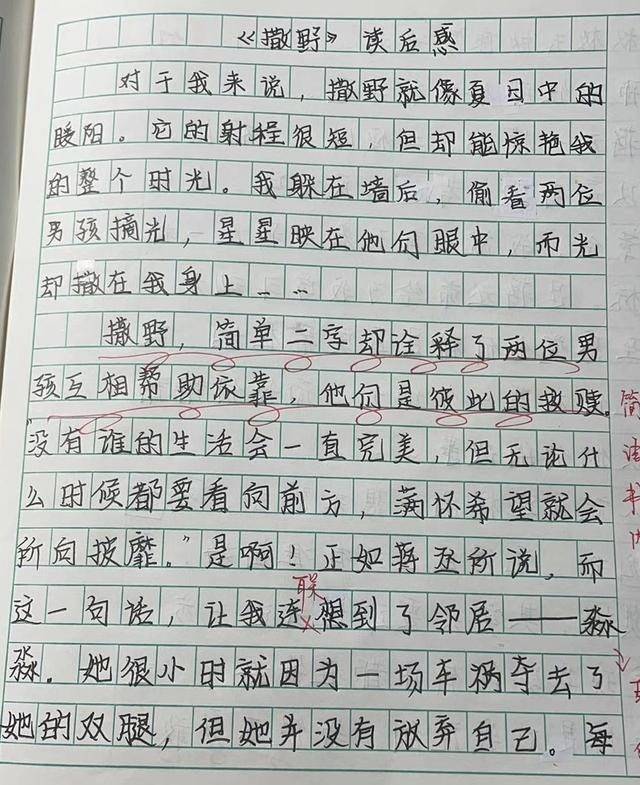 《撒野》读后感
对于我来说，撒野就像夏日中的
暖阳。它的射程很短，但却能惊艳我
的整个时光。我躲在墙后，偷看两位
男孩摘光，星星映在他们眼中，而光
却撒在我身上……
撒野，简单二字却诠释了两位男
孩互相帮助依靠，他们是彼此的救赎。
“没有谁的生活会一直完美，但无论什
么时候都要看向前方，满怀希望就会
所向披靡。”是啊！正如蒋丞所说，而
联
这一句话，让我连想到了邻居——淼
淼。她很小时就因为一场车祸夺去了
她的双腿，但她并没有放弃自己。每
简
洁
书